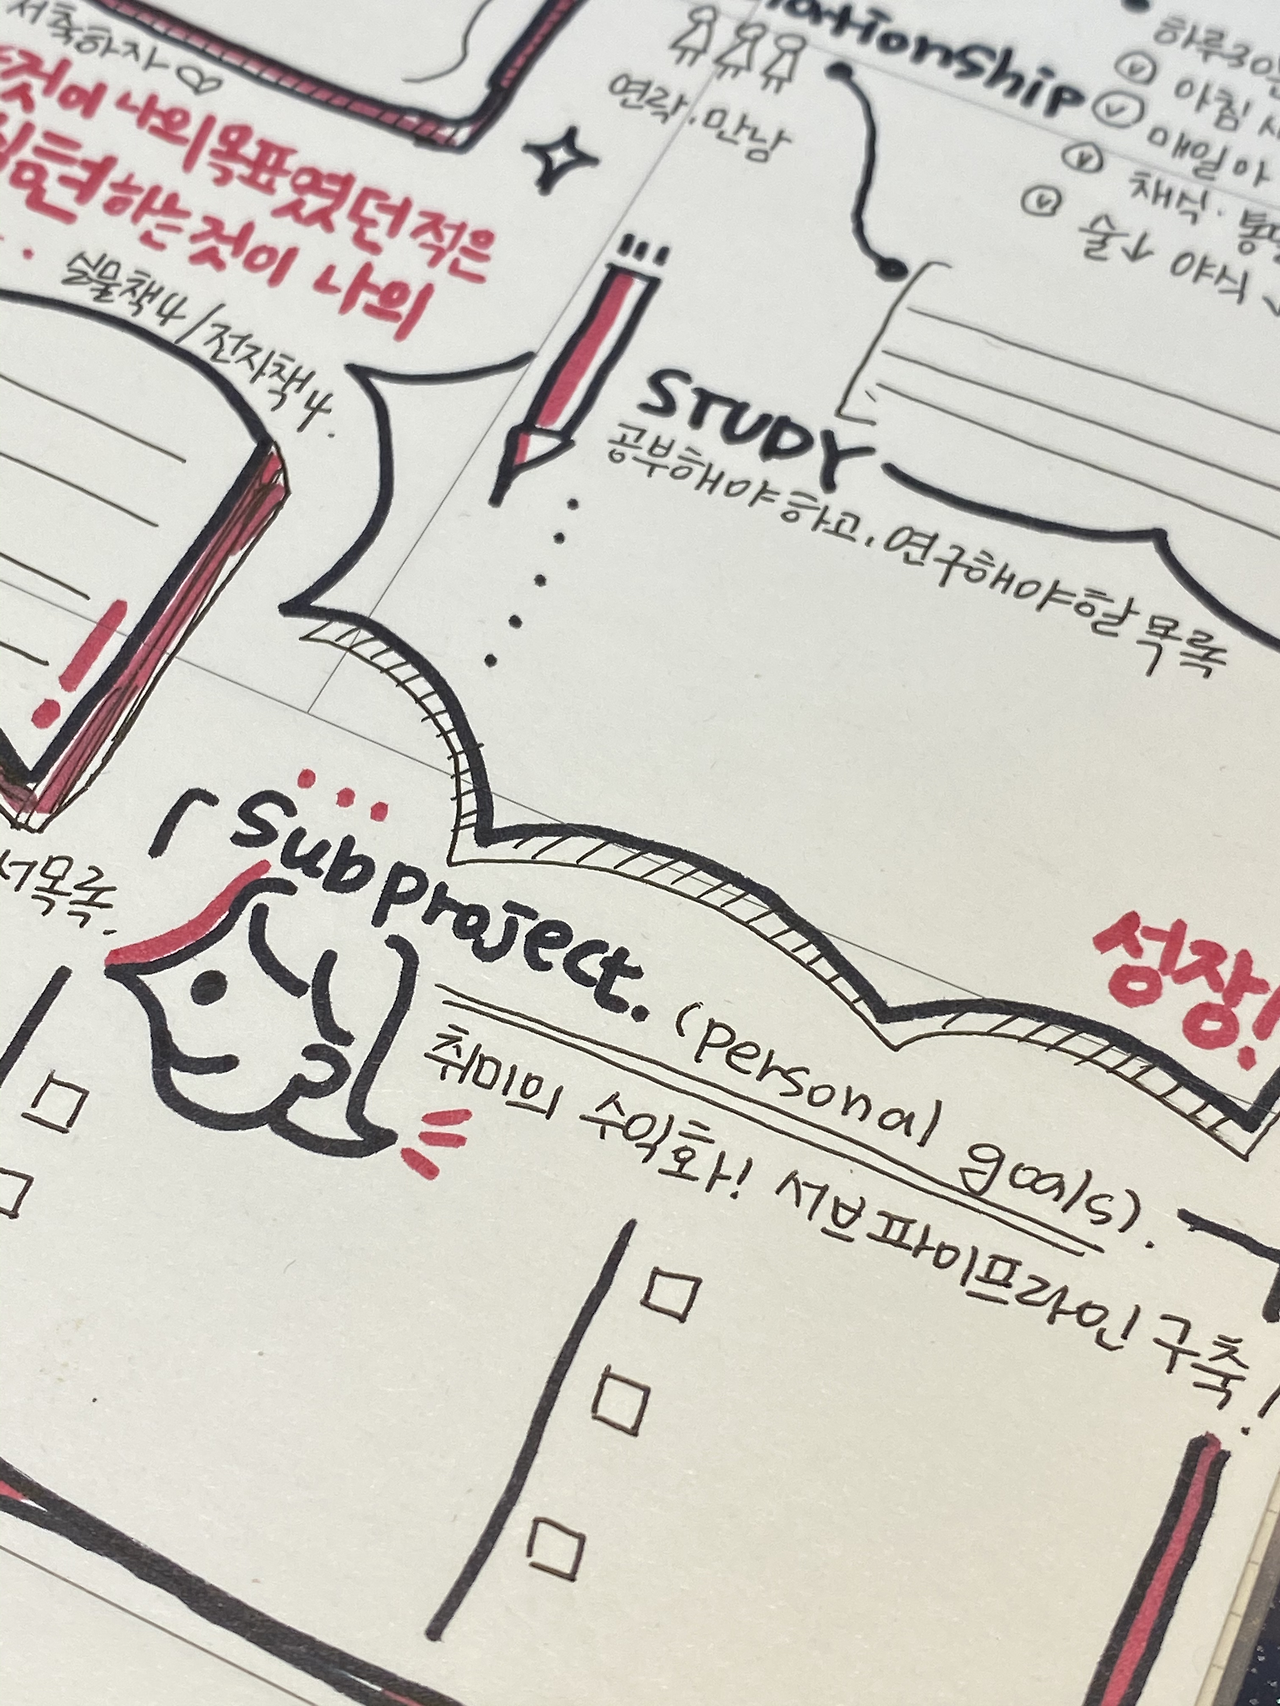 서축하자♡
것이 나의 목표였던 적은
실현하는 것이 나의
실물책4/전자책4.
ationship
연락.만남
하루30
아침
매일 아
채식.통
술↓ 야식↓
STUDY
공부해야 하고, 연구해야할 목록
성장!
서목록.
「Subproject. (personal goals).
취미의 수익화! 서브파이프라인 구축!